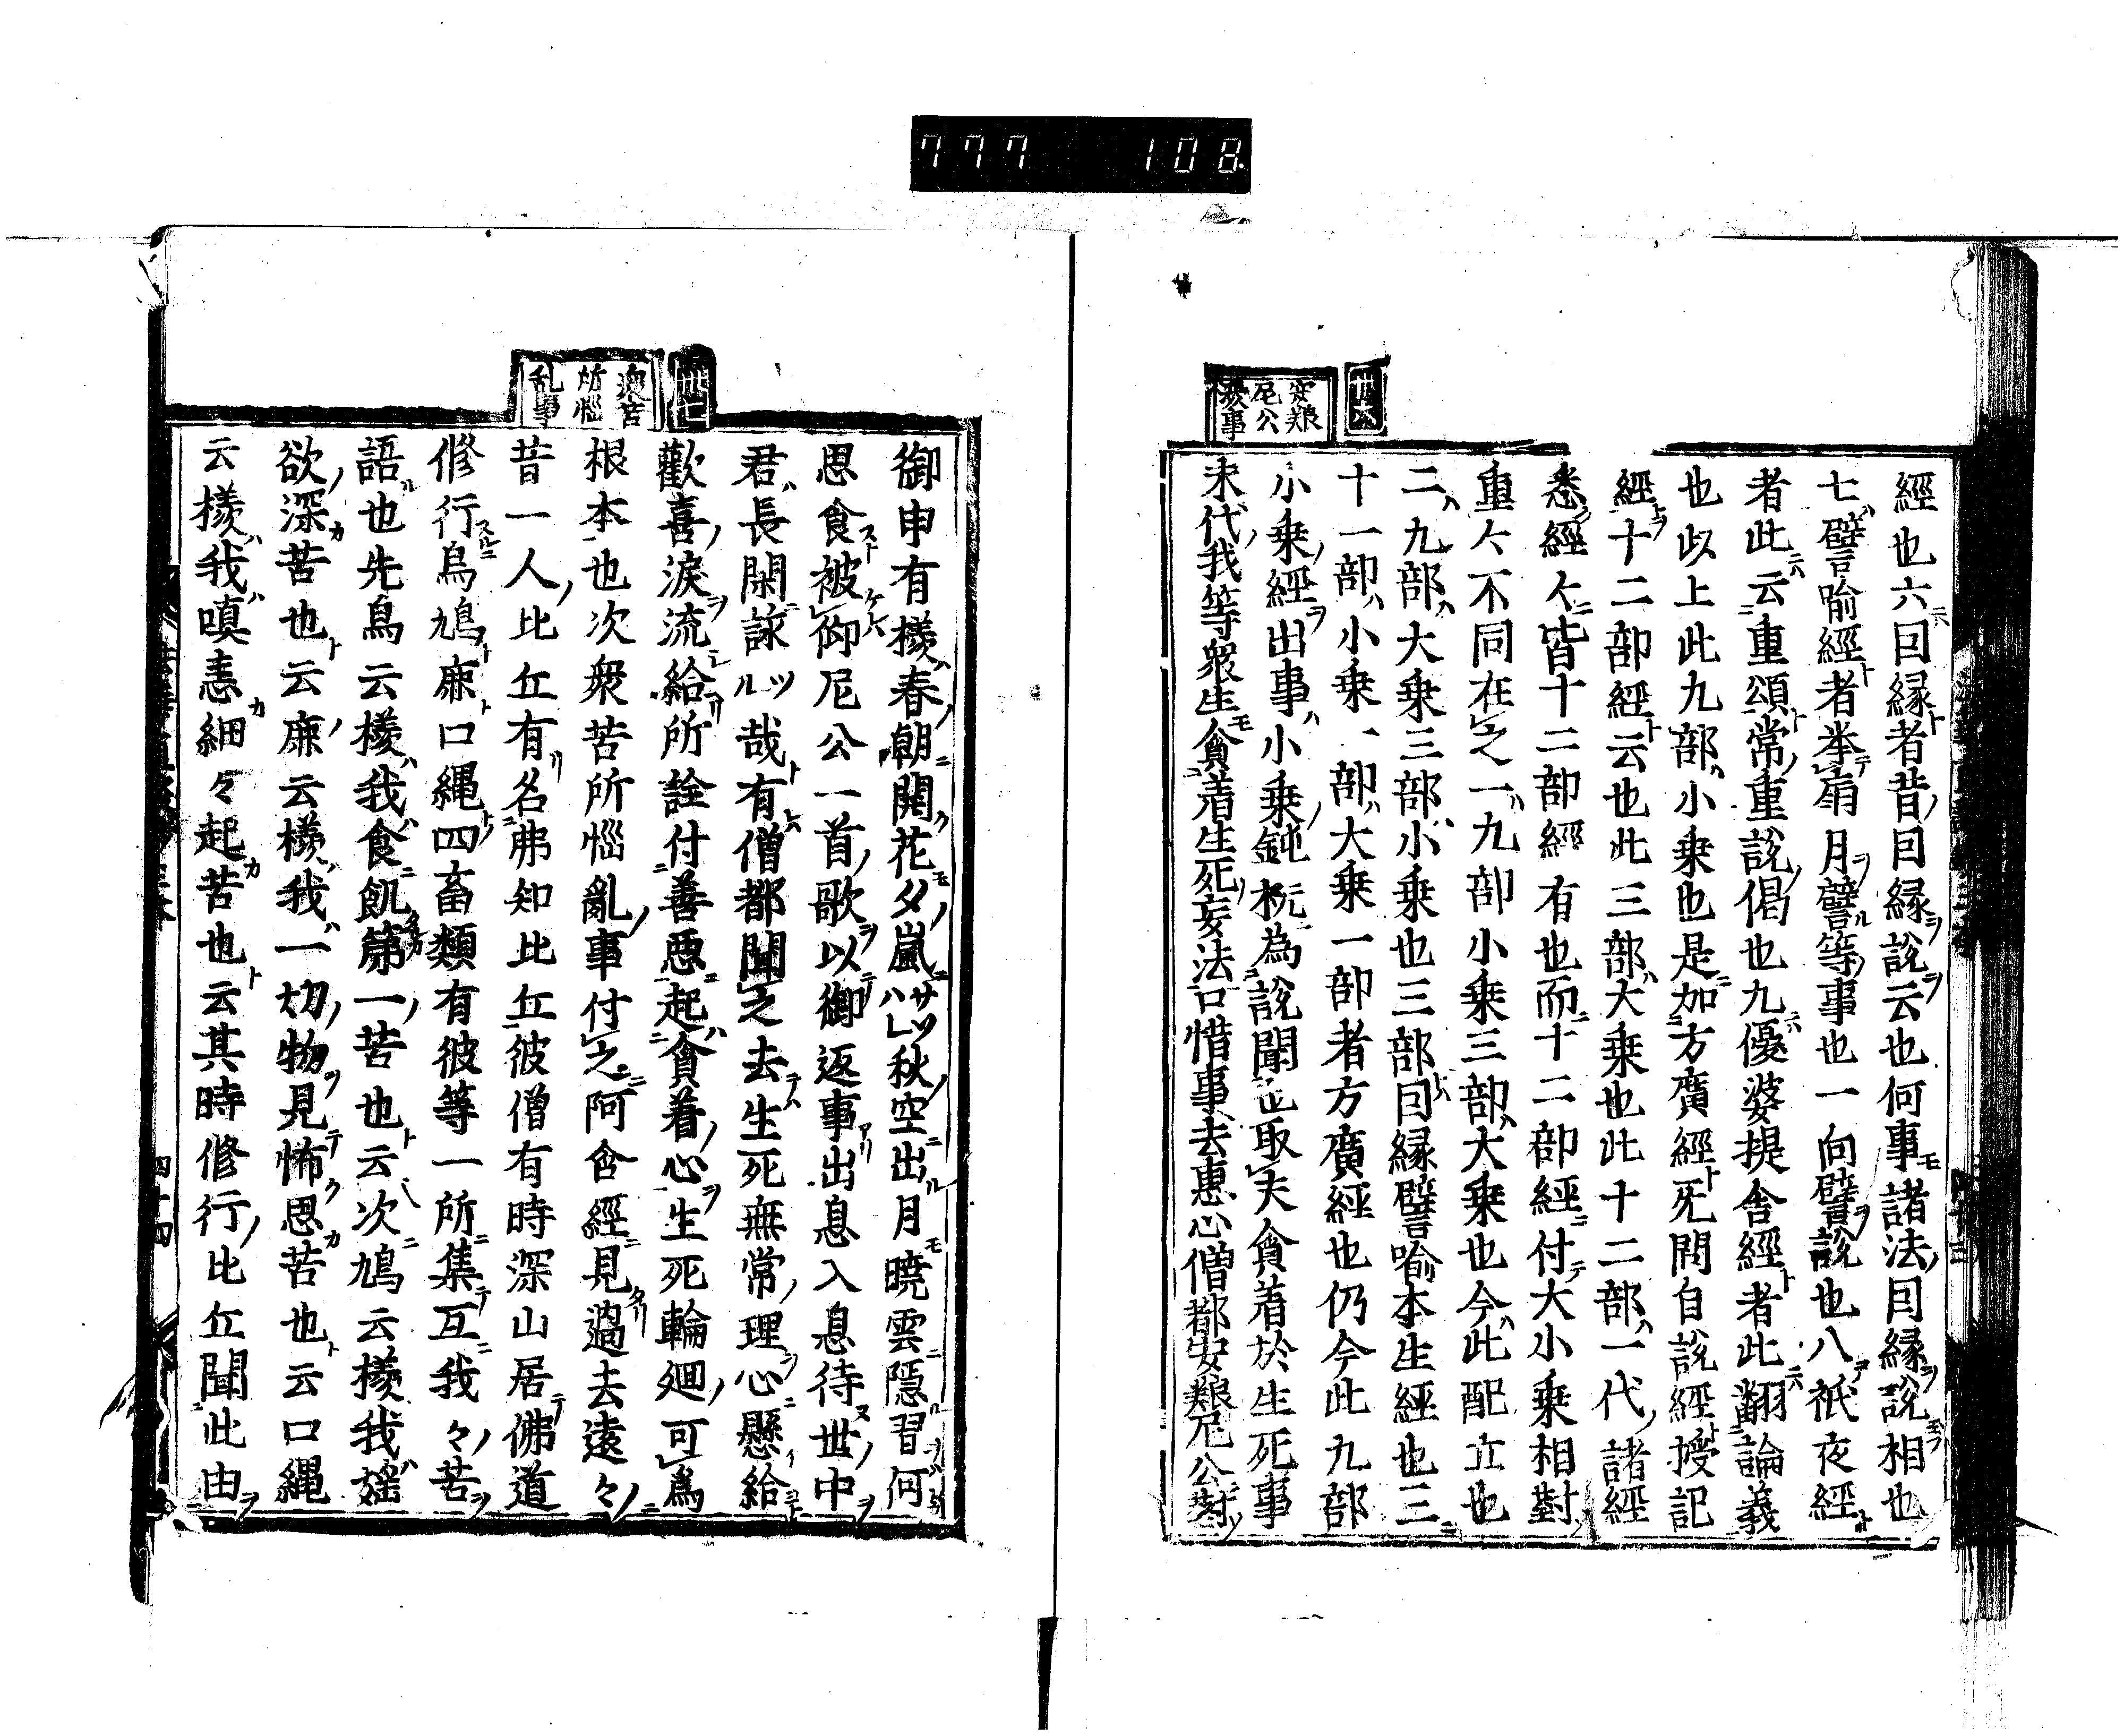 777 108
卅六
安粮
尼公
發事
經也六因縁者昔因縁說云也何事諸法因縁說相也
七譬喻經者挙扇月譬等事也一向譬說也八祇夜經
者此云重頌常重說偈也九優婆提舍經者此翻論義
也以上此九部小乗也是加方廣經无問自說經授記
經十二部經云也此三部大乗也此十二部一代諸經
悉經々皆十二部經有也而十二部經付大小乗相對
重々不同在之一九部小乗三部大乗也今此配立也
二九部大乗三部小乗也三部因縁譬喻本生經也三
十一部小乗一部大乗一部者方廣經也仍今此九部
小乗經出事小乗鈍根為說聞也取夫貪着於生死事
末代我等衆生貪着生死妄法口惜事去恵心僧都安粮尼公對
卅七
衆苦
所惱
乱事
御申有様春朝開花夕嵐サソハレ秋空出月曉雲隱習何
思食被仰尼公一首歌以御返事出息入息待世中
君長閑詠ツル哉有僧都聞之去生死無常理心懸給
歡喜淚流給所詮付善惡起貪着心生死輪廻可為
根本也次衆苦所惱亂事付之阿含經見過去遠々
昔一人比丘有名弗知比丘彼僧有時深山居佛道
修行鳥鳩鹿口縄四畜類有彼等一所集互我々苦
語也先鳥云様我食飢第一苦也云次鳩云様我婬
欲深苦也云鹿云様我一切物見怖思苦也云口縄
云様我嗔恚細々起苦也云其時修行比丘聞此由
四十四